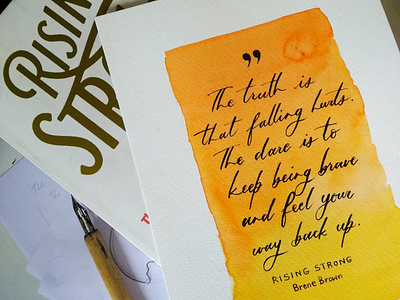 RISING
STRO
”
The truth is
that falling hurts.
The dare is to
keep being brave
and feel your
way back up.
RISING STRONG
Brene Brown